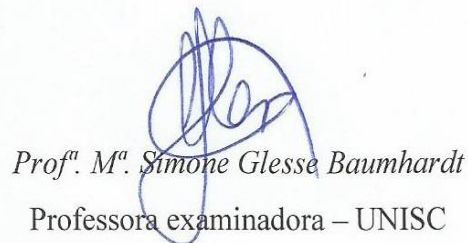 Profª. Mª. Simone Glesse Baumhardt
Professora examinadora – UNISC